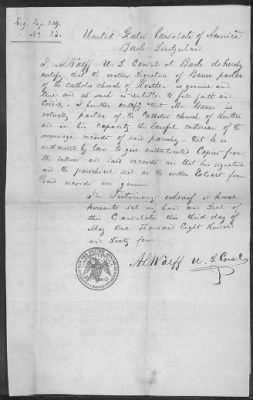 United States Consulate of America
Basle Switzerland
I A L Wolff U. S. Consul at Basle do hereby
certify that the within Signature of Baner pastor
of the Catholic church of is genuine and
true and as such is entitled to full faith and
Credit. I further certify that Mr Baner is
actually pastor of the Catholic church of
and in his capacity the lawful custodian of the
marriage records of said parish, that he is
authorised by law to give authenticated Copies from
the entries in said records and that his signature
and the parochial seal on the within Extract from
said records are genuine
In Testimony whereof I have
hereunto set my hand and Seal of
this Consulate this third day of
May One Thousand Eight Hundred
and Sixty four
A L Wolff U. S. Consul